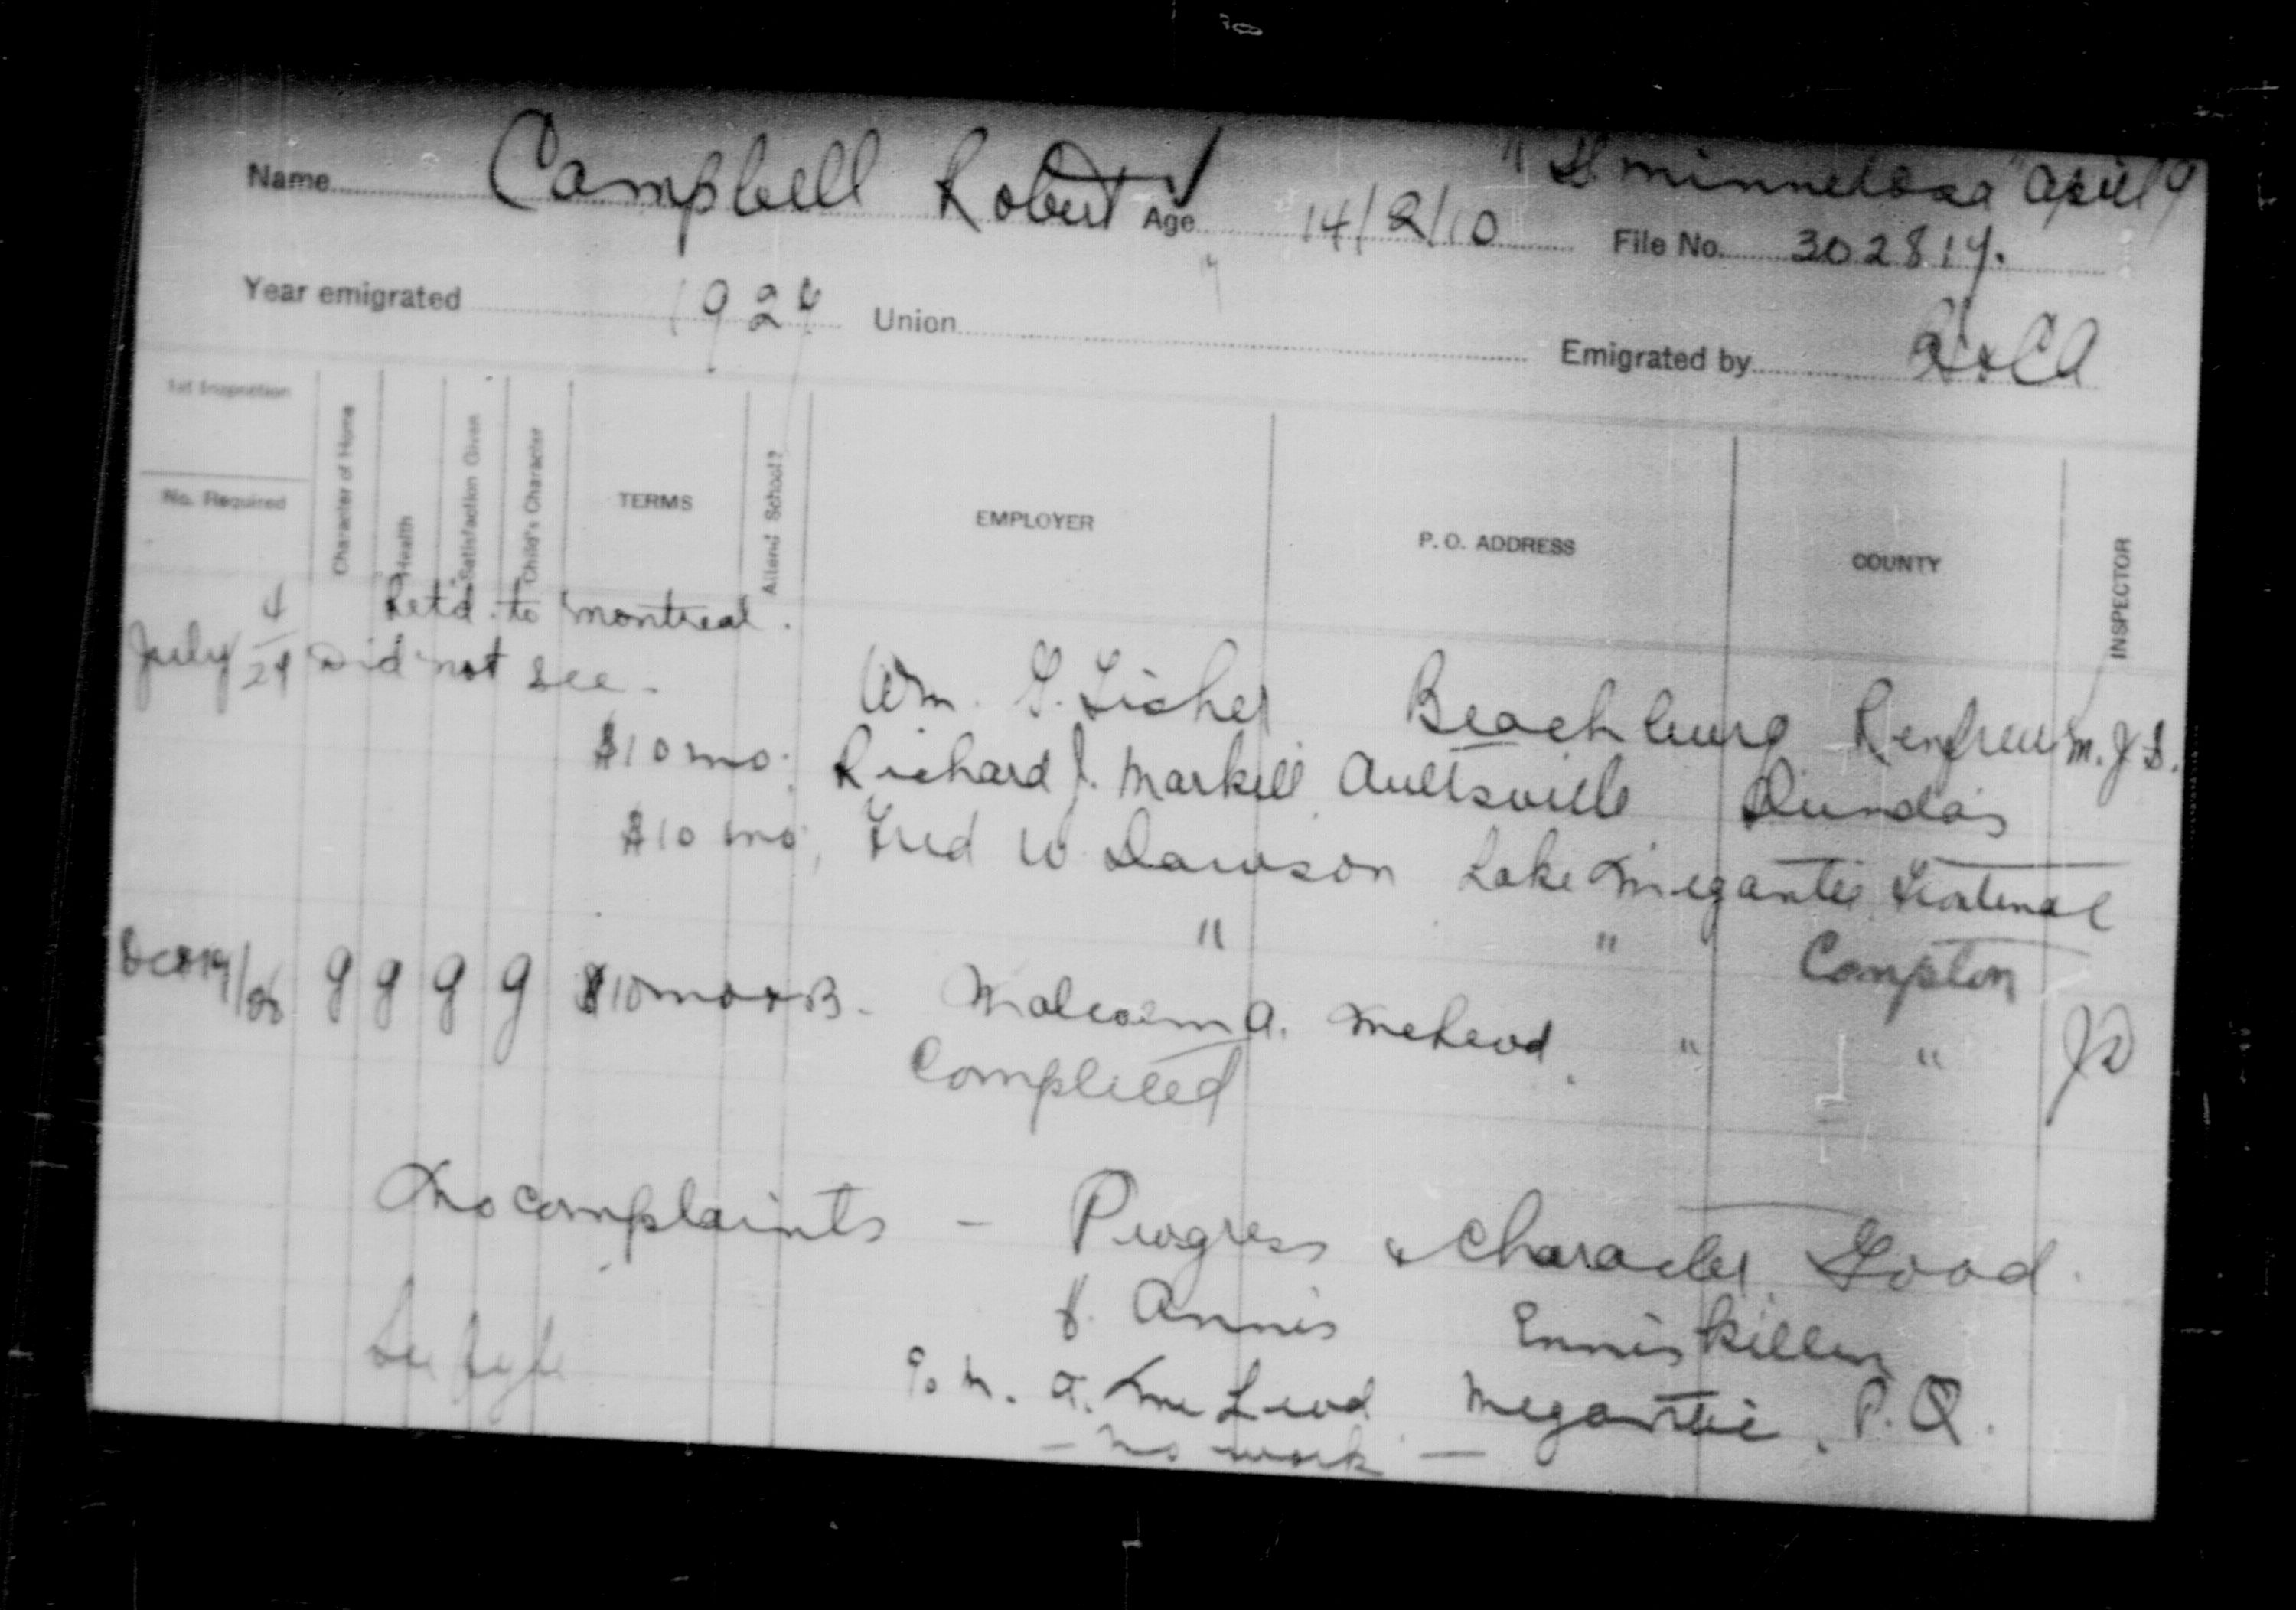 " SS minnedosa " april 9
Name Campbell Robert Age 14/2/10 File No. 302817.
Year emigrated 192 Union Emigrated by
1st Inspection
No. Required
Character of Home
Health
Satisfaction Given
Child's Character
TERMS
Attend School?
EMPLOYER
P. O. ADDRESS
COUNTY
INSPECTOR
Retd. to montreal.
July 4/24 Did not see. Wm. G. Fisher Beachburg Renfrew M. J. S.
$10 mo. Richard J. Markell Aultsville Dundas
$10 mo, Fred W Dawson Lake Megantic Frontenac
" " Compton
g g g g $10 mo + B. Malcolm A. McLeod. " " JD
Completed
No complaints - Progress & Character Good.
J. Annis Enniskillen
See fyle c/o M. A. McLeod Megantic, P. Q.
- no work -